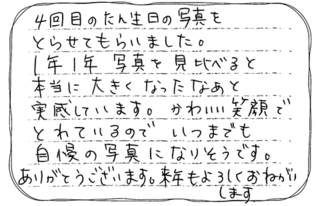 4回目のたん生日の写真を
とらせてもらいました。
1年1年 写真を見比べると
本当に大きくなったなあと
実感しています。かわいい笑顔で
とれているので いつまでも
自慢の写真になりそうです。
ありがとうございます。来年もよろしくおねがい
します